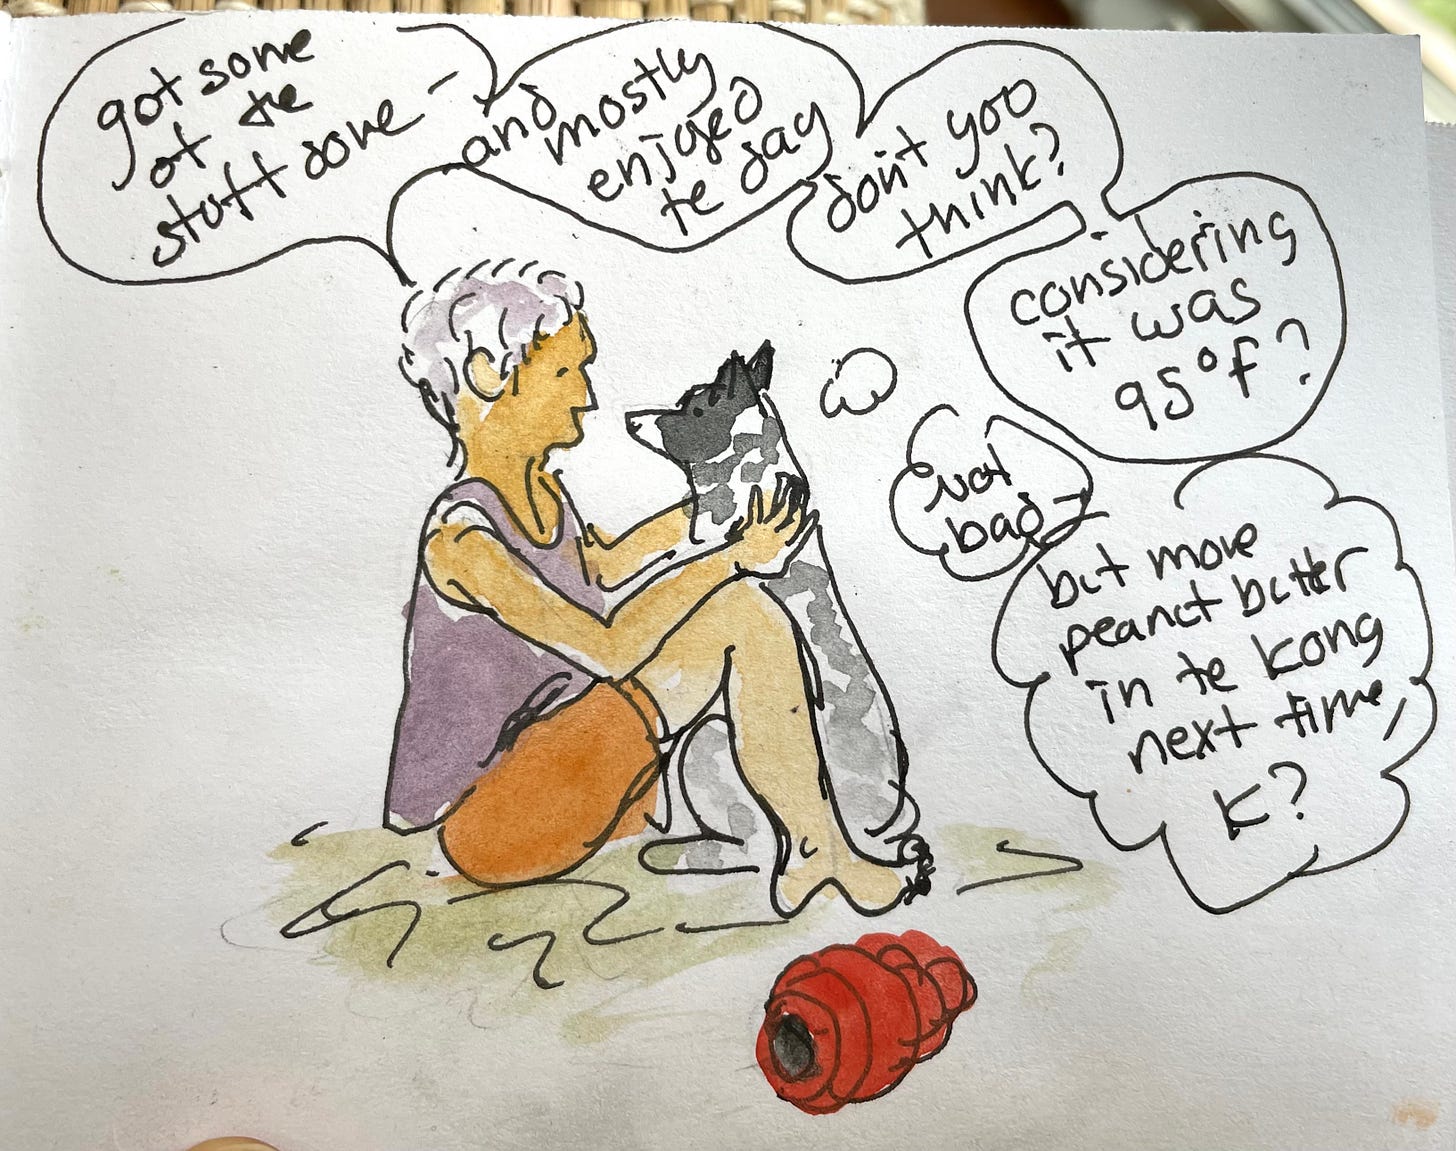 got some
of the
stuff done -
and
mostly
enjoyed
te day
don't you
think?
considering
it was
95°f?
Not
bad -
but more
peanut butter
in te Kong
next time,
K?